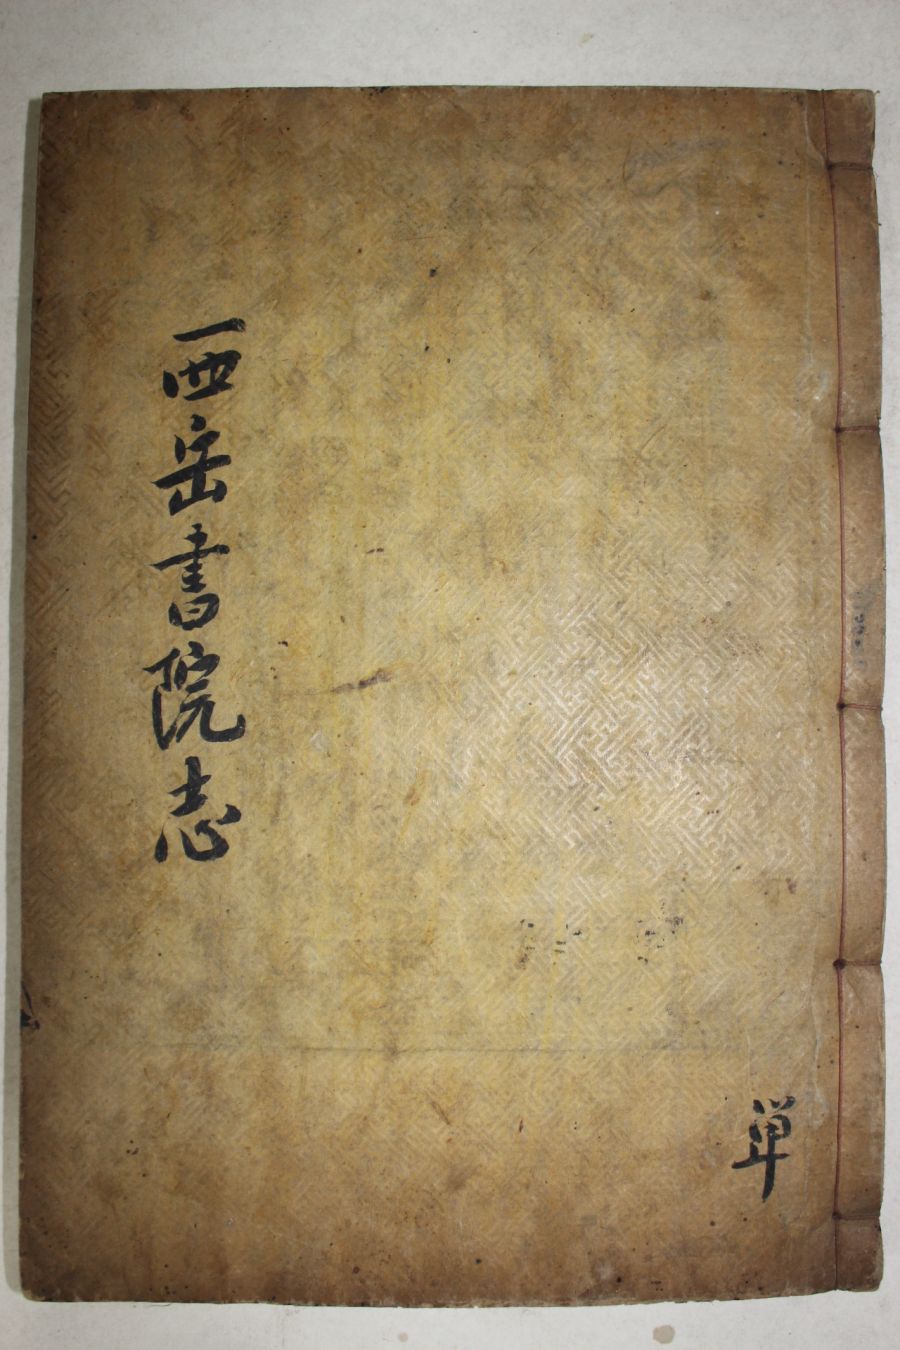 西岳書院志
単